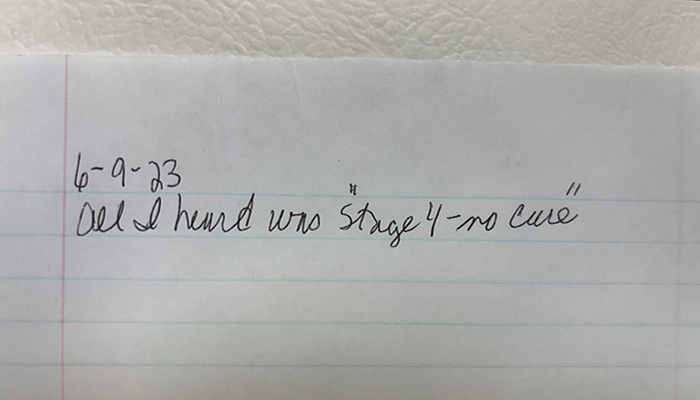 6-9-23
All I heard was "Stage 4-no cure"